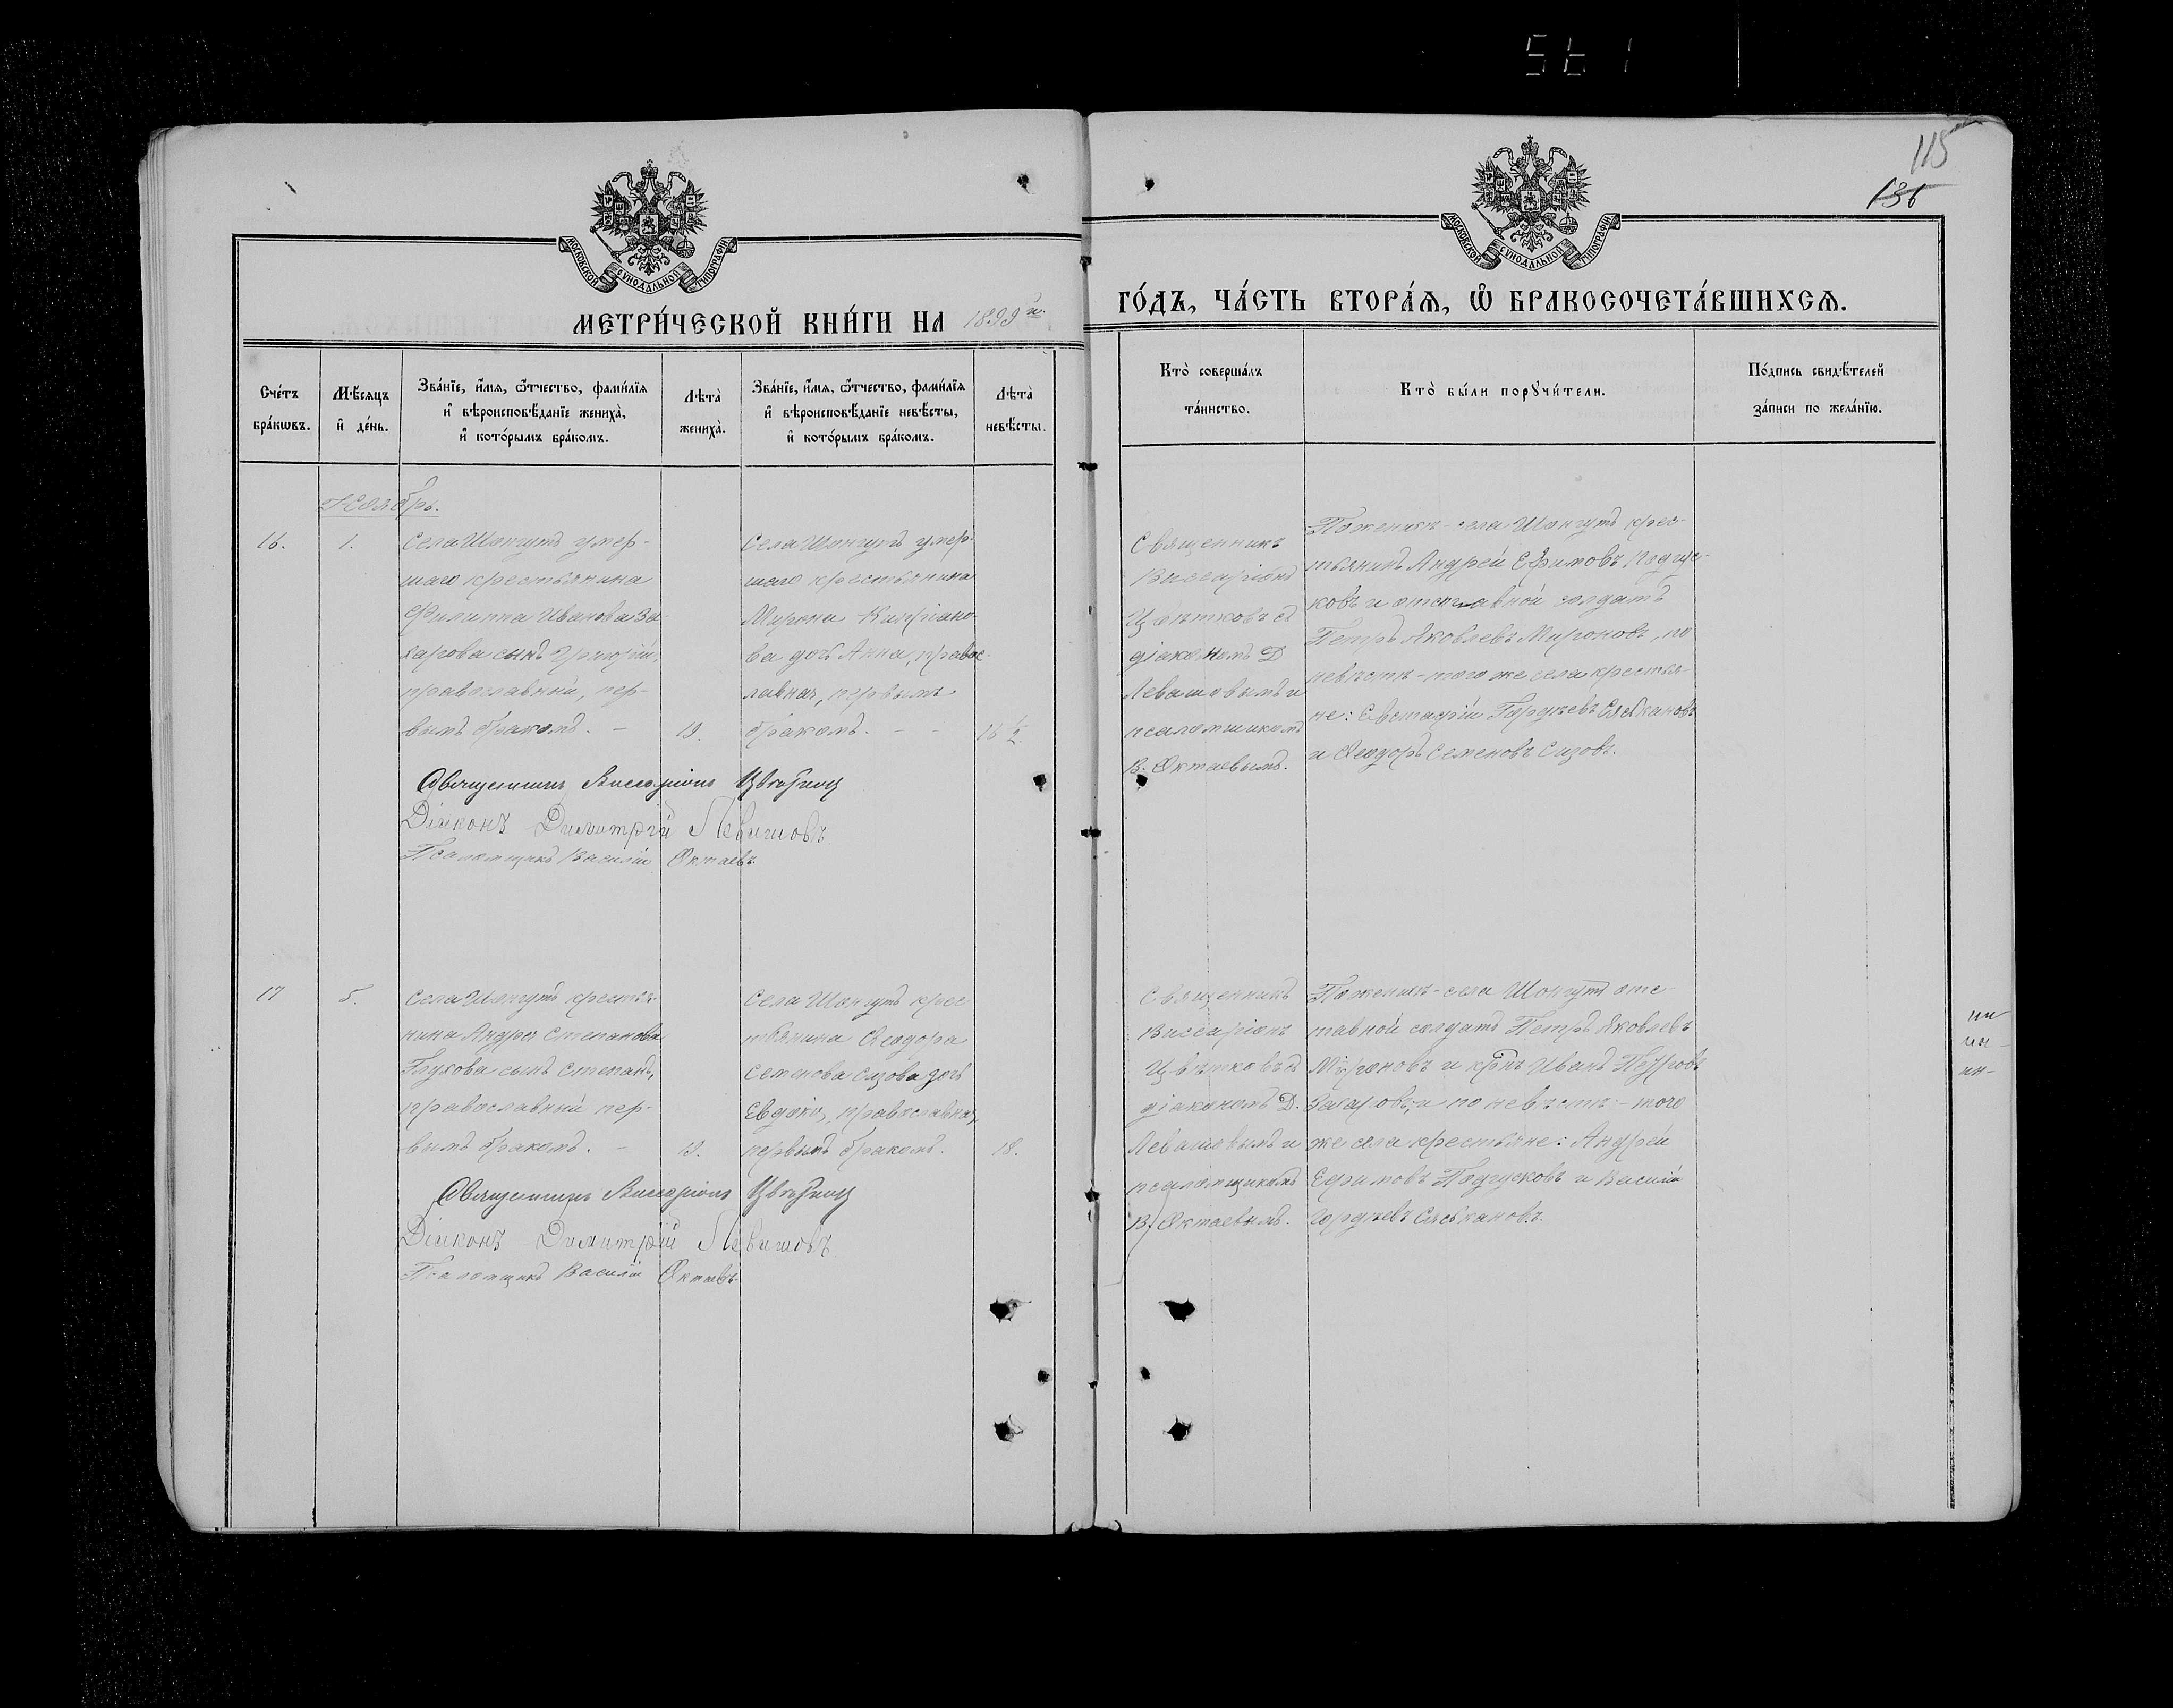 115
136
МОСКОВСКОЙ СѴНОДАЛЬНОЙ ТИПОГРАФІИ
МОСКОВСКОЙ СѴНОДАЛЬНОЙ ТИПОГРАФІИ
МЕТРИ́ЧЕСКОЙ КНИ́ГИ НА 1899 й.
ГО́ДЪ, ЧА́СТЬ ВТОРА́Ѧ, Ѽ БРАКОСОЧЕТА́ВШИХСѦ.
Сче́тъ
бра́кѡвъ.
Мѣ́сѧцъ
и҆ де́нь.
Зва́нїе, и҆́мѧ, ѻ҆́тчество, фами́лїѧ
и҆ вѣроисповѣ́данїе жениха̀,
и҆ кото́рымъ бра́комъ.
Лѣта̀
жениха̀.
Зва́нїе, и҆́мѧ, ѻ҆́тчество, фами́лїѧ
и҆ вѣроисповѣ́данїе невѣ́сты,
и҆ кото́рымъ бра́комъ.
Лѣта̀
невѣ́сты.
Кто̀ соверша́лъ
та́инство.
Кто̀ бы́ли порꙋчи́тели.
По́дпись свидѣ́телей
за́писи по жела́нїю.
Ноябрь.
16.
1.
Села Шонгутъ умер-
шаго крестьянина
Филиппа Иванова За-
харова сынъ Григорій,
православный, пер-
вымъ бракомъ. –
19.
Села Шонгутъ умер-
шаго крестьянина
Мирона Кипріано-
ва дочь Анна, правос-
лавная, первымъ
бракомъ. – –
16 1/2
Священникъ
Виссаріонъ
Цвѣтковъ съ
діакономъ Д.
Левашовымъ и
псаломщикомъ
В. Октаевымъ.
По женихѣ – села Шонгутъ крес-
тьянинъ Андрей Ефимовъ Подгус-
ковъ и отставной солдатъ
Петръ Яковлевъ Мироновъ, по
невѣстѣ – того же села крестья-
не: Евстафій Гордѣевъ
и Ѳеодоръ Семеновъ Сизовъ.
Священникъ Виссаріонъ Цвѣтковъ
Діаконъ Димитрій Левашовъ
Псаломщикъ Василій Октаевъ
17
5.
Села Шонгутъ крестья-
нина Андрея Степанова
Глухова сынъ Степанъ,
православный пер-
вымъ бракомъ. –
19.
Села Шонгутъ крес-
тьянина Ѳеодора
Семенова Сизова дочь
Евдокія, православная,
первымъ бракомъ.
18.
Священникъ
Виссаріонъ
Цвѣтковъ съ
діакономъ Д.
Левашовымъ и
псаломщикомъ
В. Октаевымъ.
По женихѣ – села Шонгутъ отс-
тавной солдатъ Петръ Яковлевъ
Мироновъ и крнъ Иванъ Петровъ
Захаровъ, и по невѣстѣ – того
же села крестьяне: Андрей
Ефимовъ Подгусковъ и Василій
Гордѣевъ
Священникъ Виссаріонъ Цвѣтковъ
Діаконъ Димитрій Левашовъ
Псаломщикъ Василій Октаевъ